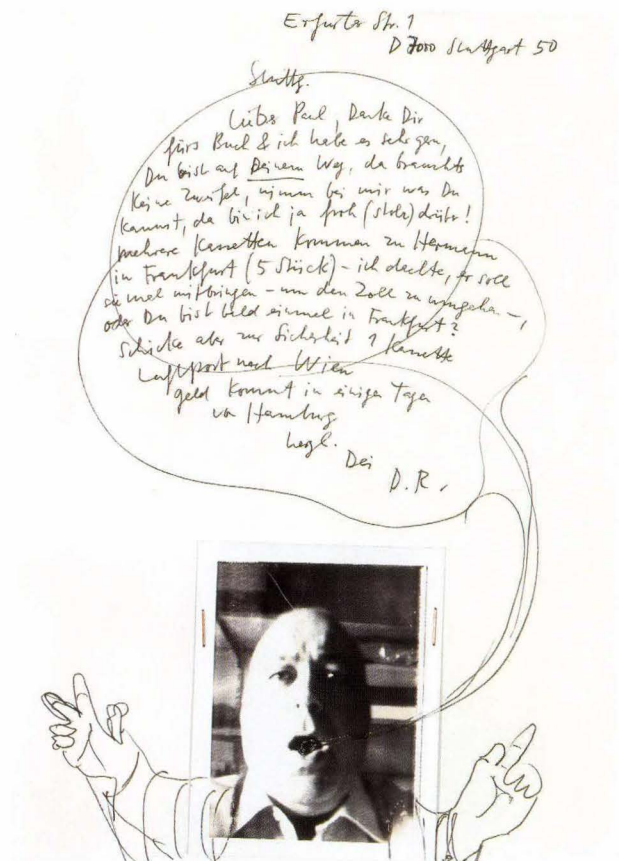 Erfurter Str. 1
D 7000 Stuttgart 50
Stuttg.
Lieber Paul, Danke Dir
fürs Buch & ich habe es sehr gern,
Du bist auf Deinem Weg, da brauchts
keine Zweifel, nimm bei mir was Du
kannst, da bin ich ja froh (stolz) drüber!
mehrere Kassetten kommen zu Hermann
in Frankfurt (5 Stück) – ich dachte, er soll
sie mal mitbringen – um den Zoll zu umgehen –,
oder Du bist bald einmal in Frankfurt?
Schicke aber zur Sicherheit 1 Kassette
Luftpost nach Wien
geld kommt in einigen Tagen
von Hamburg
herzl.
Dei
D.R.